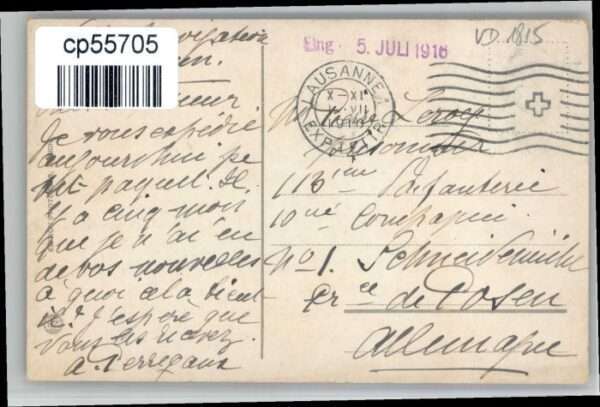 cp55705
VD 1815
Eing. 5. JULI 1916
LAUSANNE 1
X-XI
VII
EXP. LETTR.
Monsieur
Je vous expédie
aujourd'hui pe
tit paquet. Il
y a cinq mois
que je n'ai eu
de vos nouvelles
à quoi cela tient-
il? J'espère que
vous les recevrez.
A. Perregaux
Leroy
Prisonnier
113ème Infanterie
10me Compagnie
No 1. Schneidemühl
Prce de Posen
Allemagne